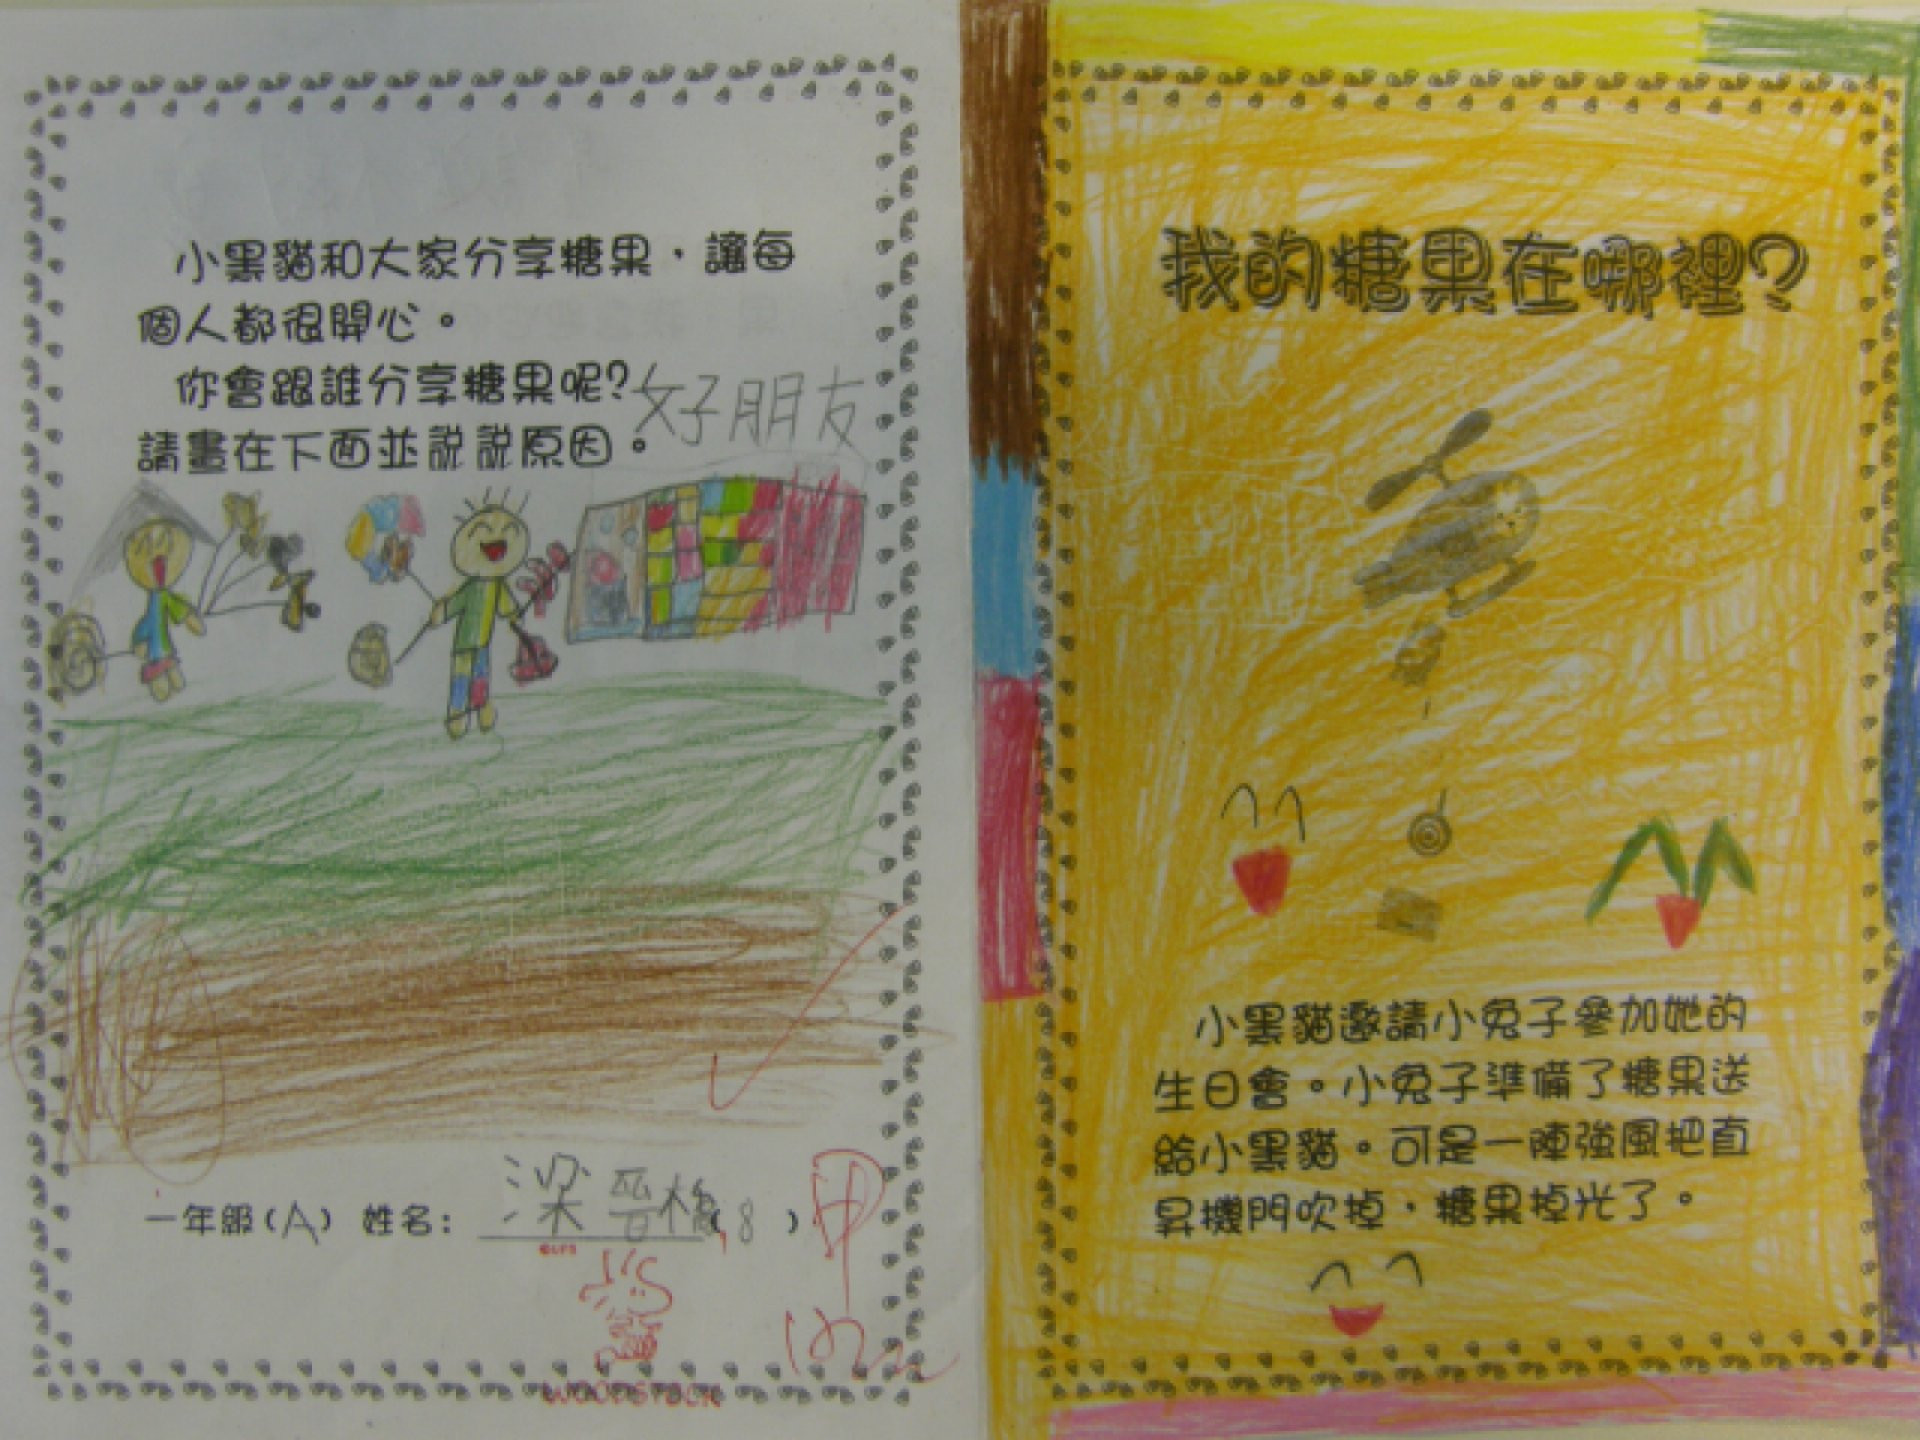 小黑貓和大家分享糖果，讓每
個人都很開心。
你會跟誰分享糖果呢?好朋友
請畫在下面並說說原因。
一年級(A) 姓名: 梁晉橋(8)
甲
WOODSTOCK
我的糖果在哪裡?
小黑貓邀請小兔子參加她的
生日會。小兔子準備了糖果送
給小黑貓。可是一陣強風把直
昇機門吹掉，糖果掉光了。